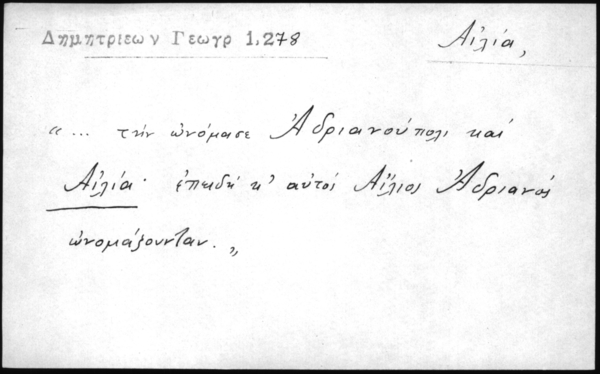 Δημητριεων Γεωγρ 1,278
Αἰλία,
«... τὴν ὠνόμασε Ἀδριανούπολι καὶ
Αἰλία· ἐπειδὴ κ' αὐτοὶ Αἴλιος Ἀδριανὸς
ὠνομάζουνταν.»